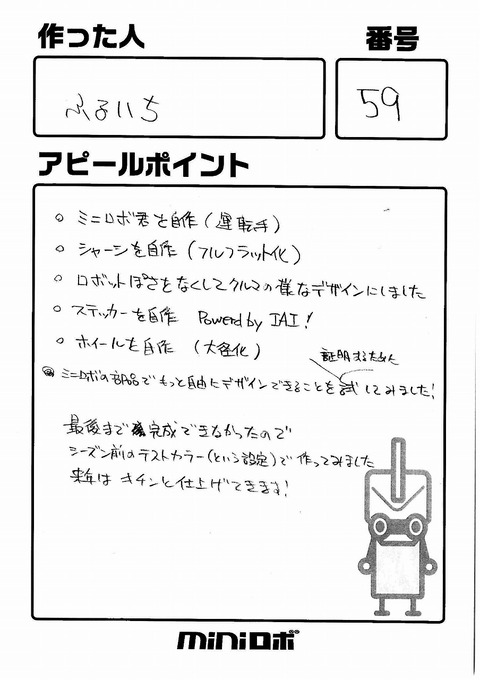 作った人
番号
ふるいち
59
アピールポイント
○ ミニロボ君を自作（運転手）
○ シャーシを自作（フルフラット化）
○ ロボットぽさをなくしてクルマの様なデザインにしました
○ ステッカーを自作 Powerd by IAI!
○ ホイールを自作（大径化）
証明するために
◎ ミニロボの部品でもっと自由にデザインできることを試してみました!
最後まで完成できなかったので
シーズン前のテストカラー(という設定)で作ってみました
来年はキチンと仕上げてきます!
miniロボ